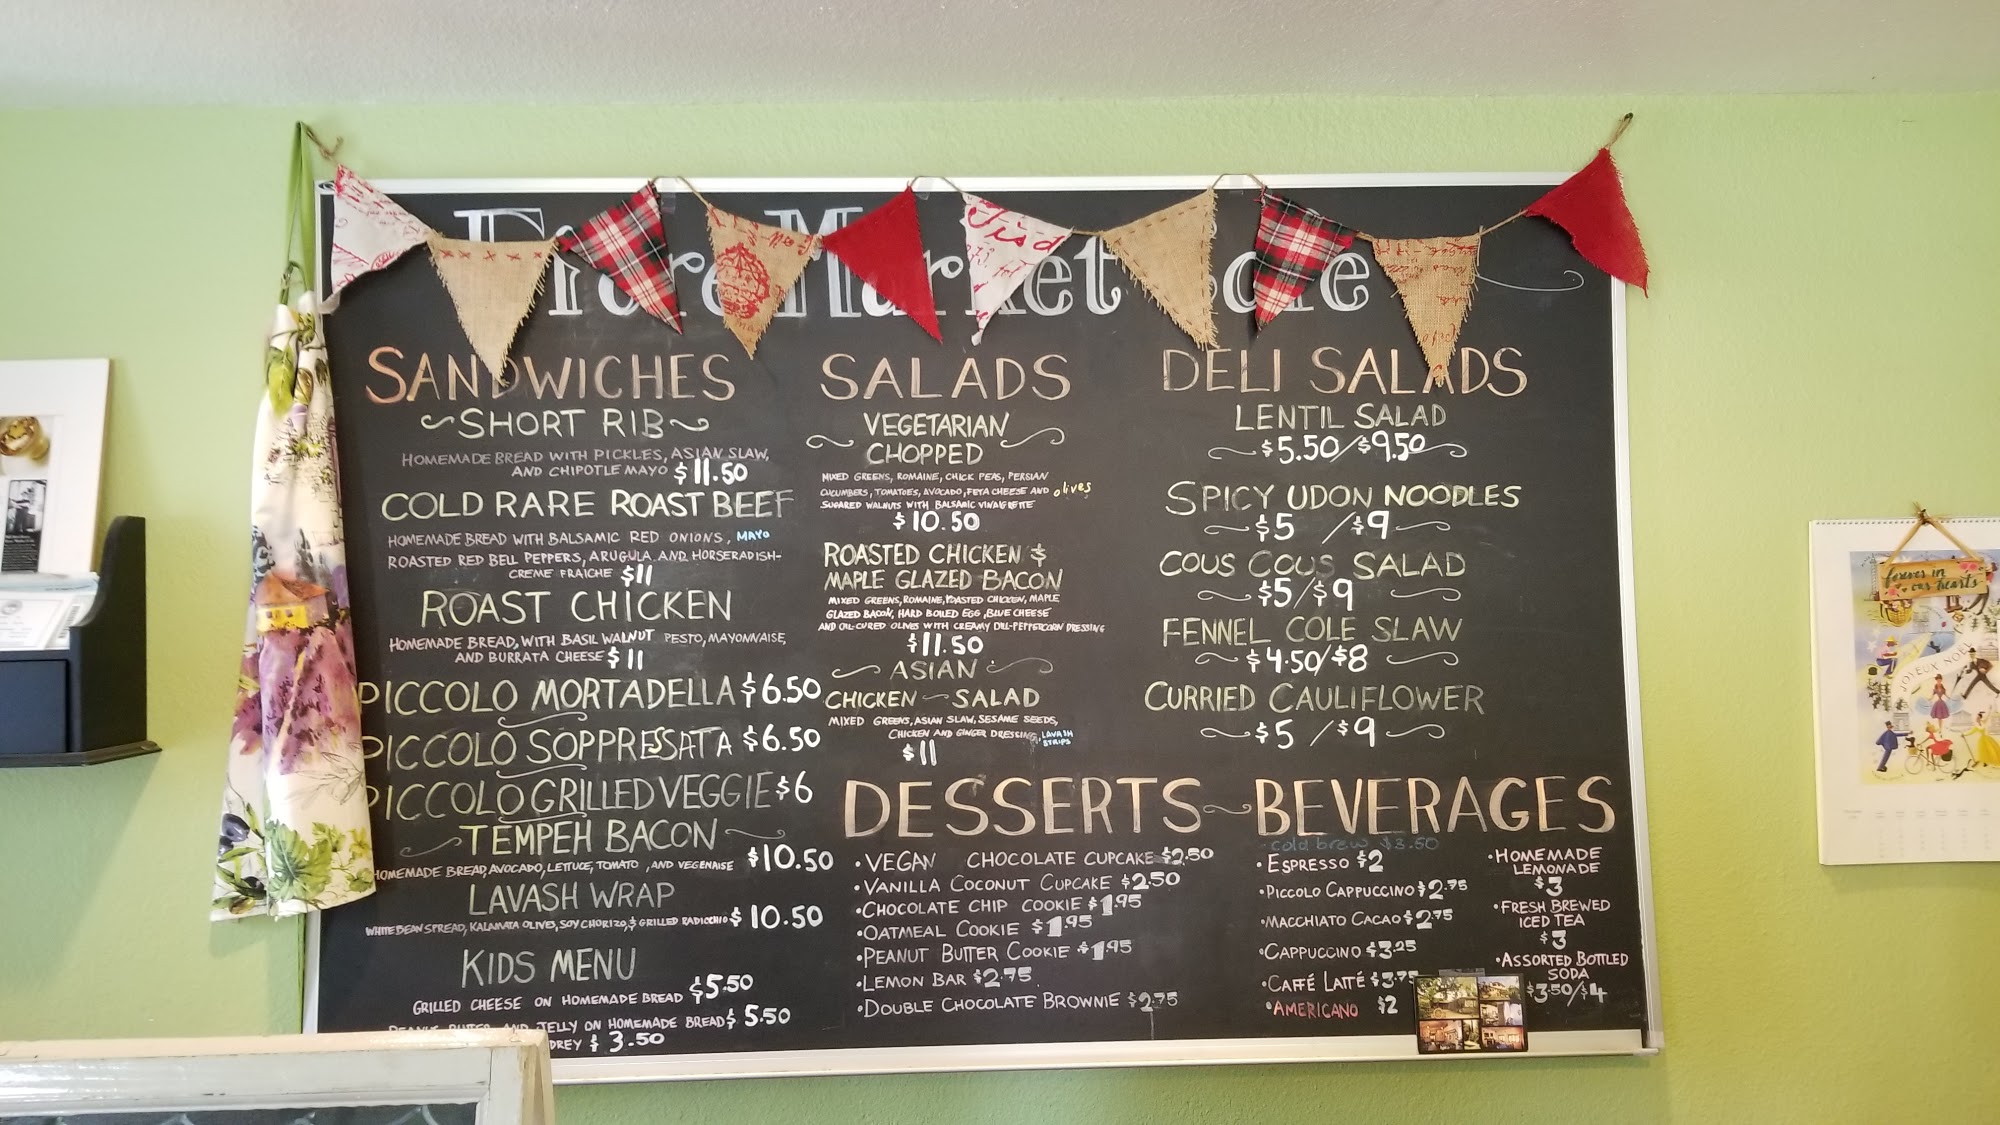 Fiore Market Cafe
SANDWICHES
SHORT RIB
HOMEMADE BREAD WITH PICKLES, ASIAN SLAW,
AND CHIPOTLE MAYO $11.50
COLD RARE ROAST BEEF
HOMEMADE BREAD WITH BALSAMIC RED ONIONS, MAYO
ROASTED RED BELL PEPPERS, ARUGULA AND HORSERADISH-
CREME FRAICHE $11
ROAST CHICKEN
HOMEMADE BREAD, WITH BASIL WALNUT PESTO, MAYONNAISE,
AND BURRATA CHEESE $11
PICCOLO MORTADELLA $6.50
PICCOLO SOPPRESSATA $6.50
PICCOLO GRILLED VEGGIE $6
TEMPEH BACON
HOMEMADE BREAD, AVOCADO, LETTUCE, TOMATO, AND VEGENAISE $10.50
LAVASH WRAP
WHITE BEAN SPREAD, KALAMATA OLIVES, SOY CHORIZO, & GRILLED RADICCHIO $10.50
KIDS MENU
GRILLED CHEESE ON HOMEMADE BREAD $5.50
PEANUT BUTTER AND JELLY ON HOMEMADE BREAD $5.50
DREY $3.50
SALADS
VEGETARIAN
CHOPPED
MIXED GREENS, ROMAINE, CHICK PEAS, PERSIAN
CUCUMBERS, TOMATOES, AVOCADO, FETA CHEESE AND olives
SUGARED WALNUTS WITH BALSAMIC VINAIGRETTE
$10.50
ROASTED CHICKEN &
MAPLE GLAZED BACON
MIXED GREENS, ROMAINE, ROASTED CHICKEN, MAPLE
GLAZED BACON, HARD BOILED EGG, BLUE CHEESE
AND OIL-CURED OLIVES WITH CREAMY DILL-PEPPERCORN DRESSING
$11.50
ASIAN
CHICKEN SALAD
MIXED GREENS, ASIAN SLAW, SESAME SEEDS,
CHICKEN AND GINGER DRESSING, LAVASH STRIPS
$11
DELI SALADS
LENTIL SALAD
$5.50/$9.50
SPICY UDON NOODLES
$5/$9
COUS COUS SALAD
$5/$9
FENNEL COLE SLAW
$4.50/$8
CURRIED CAULIFLOWER
$5/$9
DESSERTS
•VEGAN CHOCOLATE CUPCAKE $2.50
•VANILLA COCONUT CUPCAKE $2.50
•CHOCOLATE CHIP COOKIE $1.95
•OATMEAL COOKIE $1.95
•PEANUT BUTTER COOKIE $1.95
•LEMON BAR $2.75
•DOUBLE CHOCOLATE BROWNIE $2.75
BEVERAGES
cold brew $3.50
•ESPRESSO $2
•PICCOLO CAPPUCCINO $2.75
•MACCHIATO CACAO $2.75
•CAPPUCCINO $3.25
•CAFFÉ LATTÉ $3.75
•AMERICANO $2
•HOMEMADE
LEMONADE
$3
•FRESH BREWED
ICED TEA
$3
•ASSORTED BOTTLED
SODA
$3.50/$4
forever in
our hearts
JOYEUX NOEL